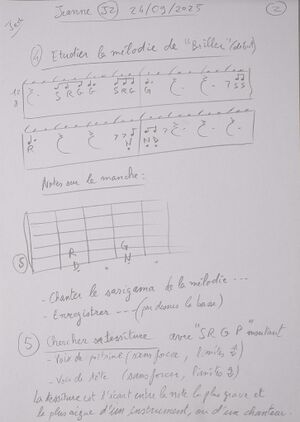 Jeanne (J2) 24/09/2025 (2)
(4) Etudier la mélodie de "Briller" (début)
12
8
S R G G S R G G S S
R N N
Notes sur le manche :
R G
(5) N
- Chanter le sarigama de la mélodie ---
- Enregistrer --- (par dessus la basse)
(5) Chercher sa tessiture avec "S R G P" montant
- Voix de poitrine (sans forcer, limites
- Voix de tête (sans forcer, limites
La tessiture est l'écart entre la note la plus grave et
la plus aigue d'un instrument, ou d'un chanteur.